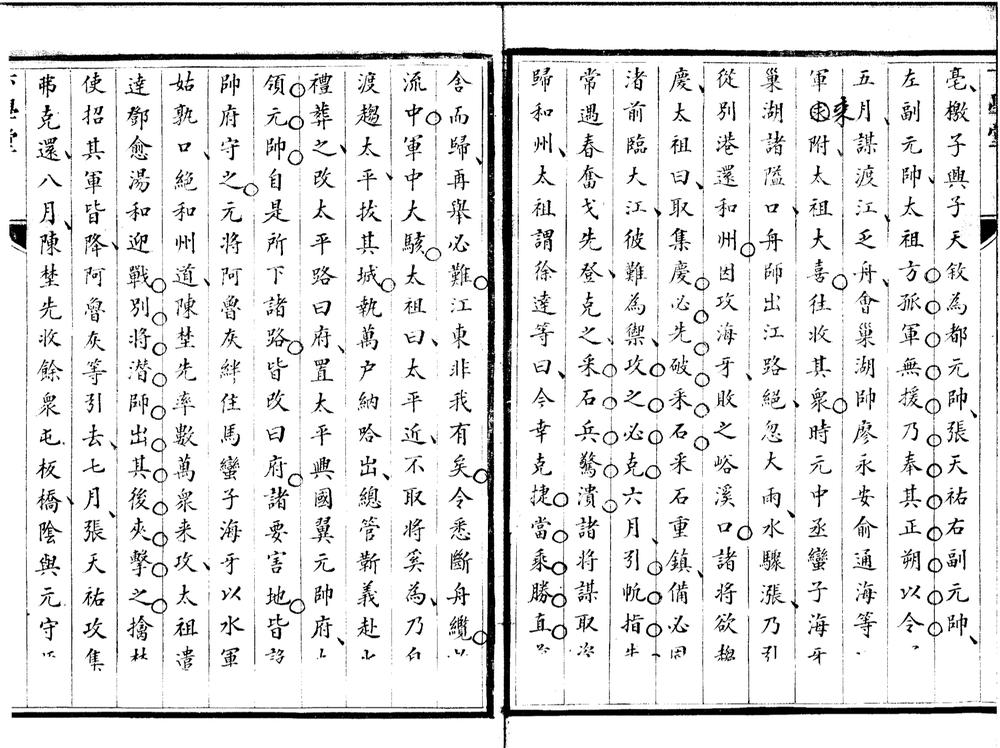 亳檄子興子天敘為都元帥張天祐右副元帥
左副元帥太祖方孤軍無援乃奉其正朔以令
五月謀渡江乏舟會巢湖帥廖永安俞通海等
軍来附太祖大喜往收其衆時元中丞蠻子海牙
巢湖諸隘口舟師出江路絕忽大雨水驟漲乃引
從別港還和州因攻海牙敗之峪溪口諸將欲趨
慶太祖曰取集慶必先破采石采石重鎮備必固
渚前臨大江彼難為禦攻之必克六月引帆指牛
常遇春奮戈先登克之采石兵驚潰諸將謀取
歸和州太祖謂徐達等曰今幸克捷當乘勝直
舍而歸再舉必難江東非我有矣令悉斷舟纜
流中軍中大駭太祖曰太平近不取將奚為乃自
渡趨太平拔其城執萬户納哈出總管靳義赴水
禮葬之改太平路曰府置太平興國翼元帥府
領元帥自是所下諸路皆改曰府諸要害地皆
帥府守之元將阿魯灰絆住馬蠻子海牙以水軍
姑孰口絕和州道陳埜先率數萬衆来攻太祖遣
達鄧愈湯和迎戰別將潛師出其後夾擊之擒埜
使招其軍皆降阿魯灰等引去七月張天祐攻集
弗克還八月陳埜先收餘衆屯板橋陰與元守